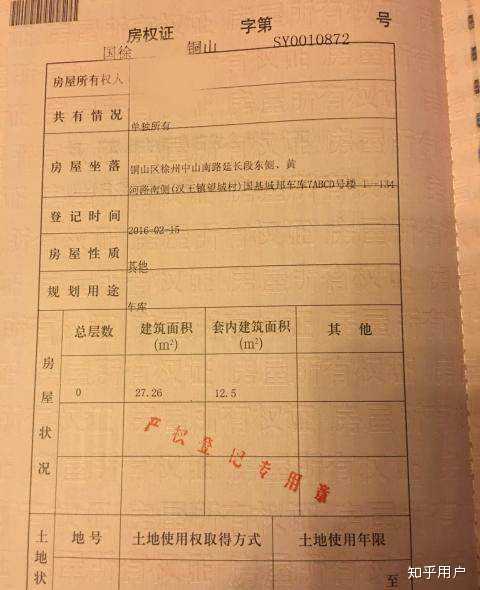 房权证 字第 号
国徐 铜山 SY0010872
房屋所有权人
共有情况 单独所有
房屋坐落 铜山区徐州中山南路延长段东侧、黄
河路南侧(汉王镇望城村)国基城邦车库7(ABCD)号楼 1--134
登记时间 2016-02-15
房屋性质 其他
规划用途 车库
房屋状况
总层数 建筑面积(m²) 套内建筑面积(m²) 其他
0 27.26 12.5
产权登记专用章
土地状
地号 土地使用权取得方式 土地使用年限
至
知乎用户